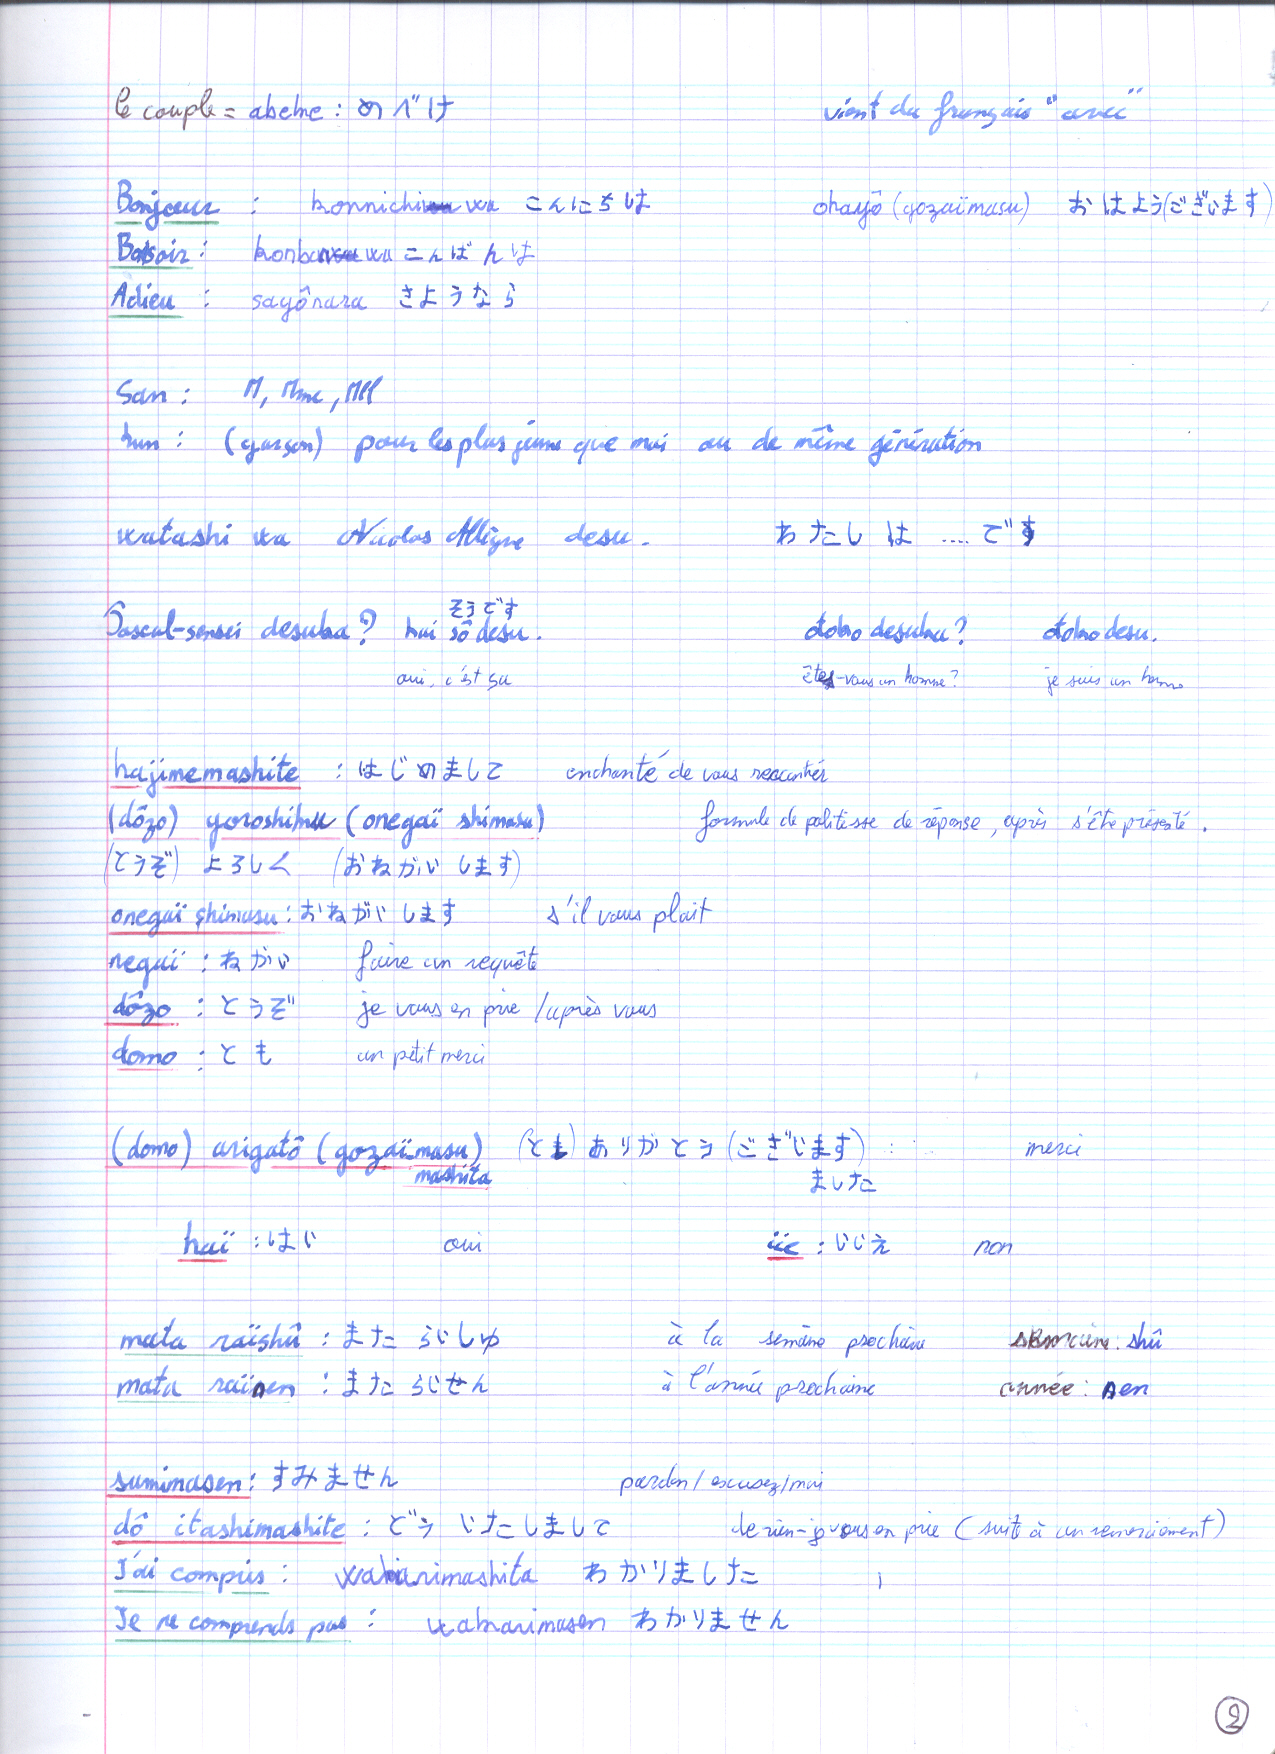 le couple = abeke : めべけ vient du français "avec"
Bonjour : konnichi wa こんにちは ohayô (gozaïmasu) おはよう(ございます)
Bonsoir : konban wa こんばんは
Adieu : sayônara さようなら
San : M, Mme, Mll
kun : (garçon) pour les plus jeune que moi ou de même génération
watashi wa Nicolas desu. わたし は .... です
そうです
Pascal-sensei desuka? hai sô desu. otoko desuka? otoko desu.
oui, c'est ça êtes-vous un homme? je suis un homme
hajimemashite : はじめまして enchanté de vous rencontrer
(dôzo) yoroshiku (onegaï shimasu) formule de politesse de réponse, après s'être présenté.
(どうぞ) よろしく (おねがい します)
onegaï shimasu : おねがい します s'il vous plait
negaï : ねがい faire un requête
dôzo : どうぞ je vous en prie / après vous
domo : とも un petit merci
(domo) arigatô (gozaïmasu) (とも) ありがとう (ございます) : merci
mashita ました
haï : はい oui iie : いいえ non
mata raïshû : また らいしゅ à la semaine prochaine semaine : shû
mata raïnen : また らいせん à l'année prochaine année : nen
sumimasen : すみません pardon / excusez/moi
dô itashimashite : どう いたしまして de rien - je vous en prie (suite à un remerciement)
J'ai compris : wakarimashita わかりました
Je ne comprends pas : wakarimasen わかりません
2